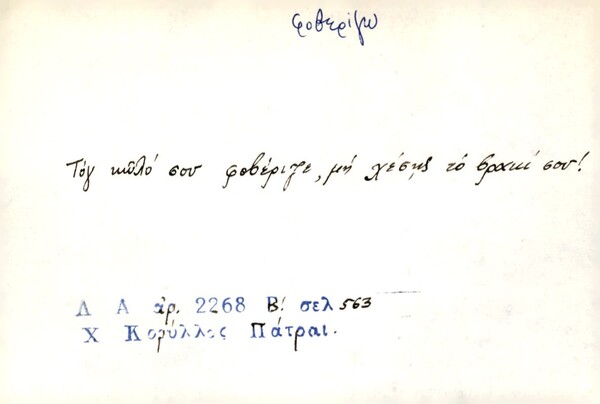 φοβερίζω
Τόγ κῶλό σου φοβέριζε, μή χέσῃς τό βρακί σου!
Λ Α ἀρ. 2268 Β! σελ 563
Χ Κορύλλος Πάτραι.